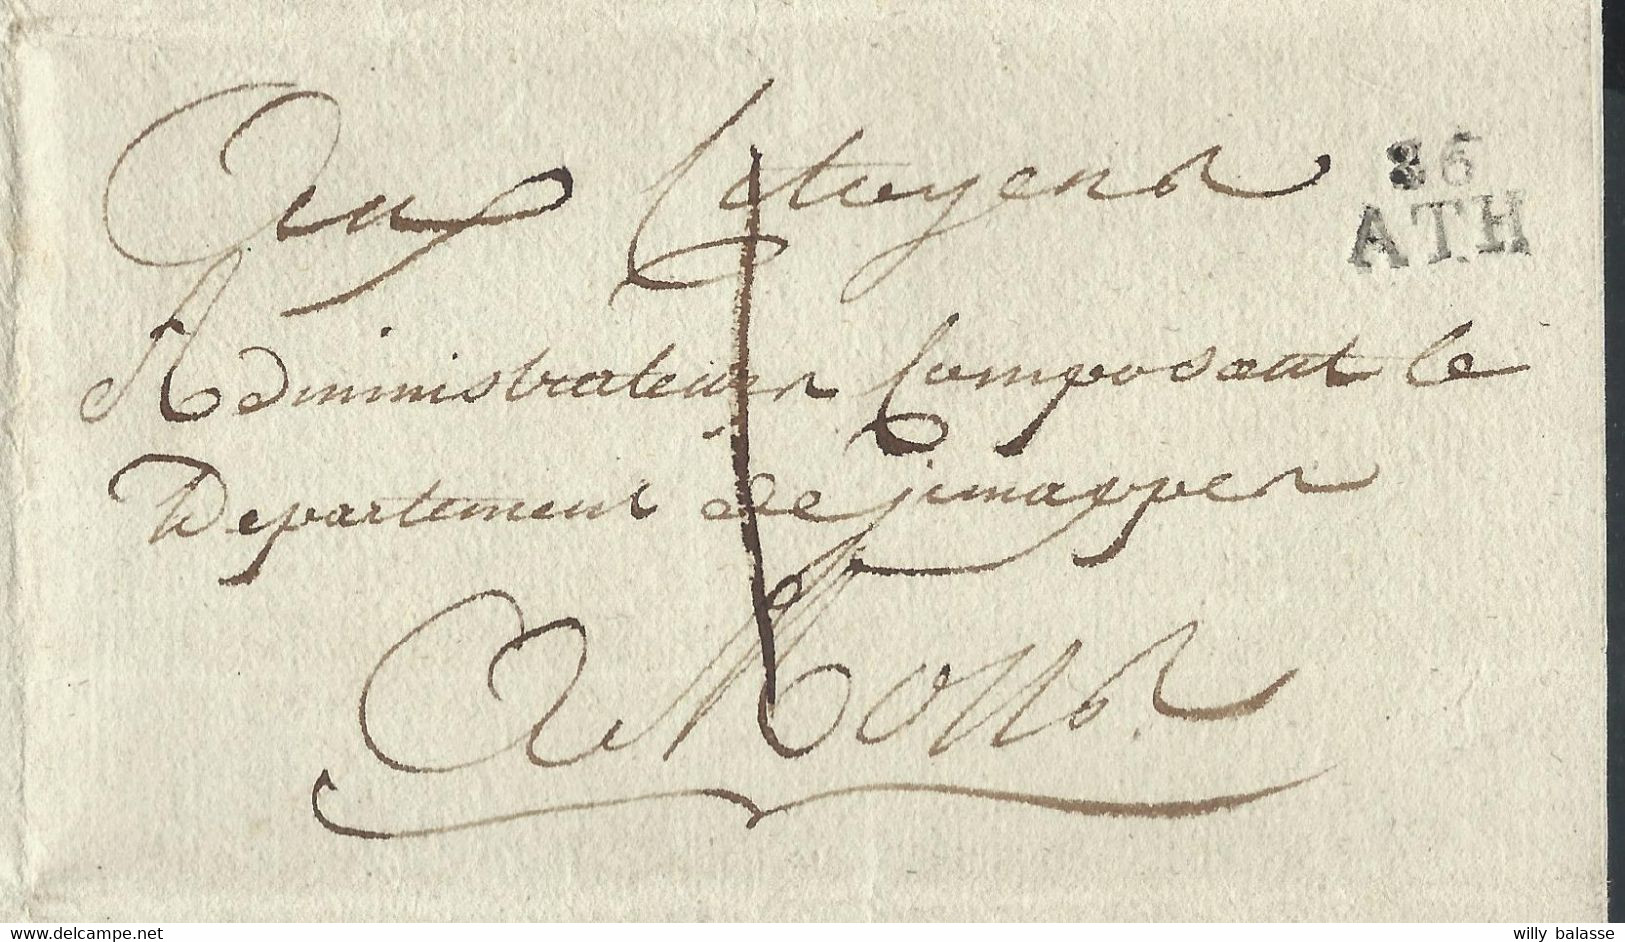 Aux Citoyens
86
ATH
Administrateurs Composant le
Departement de Jemappes
A Mons
delcampe.net
willy balasse